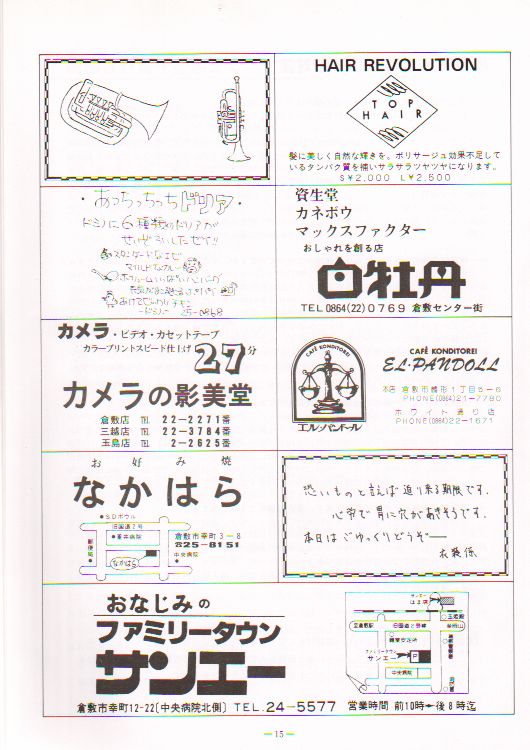 HAIR REVOLUTION
TOP
HAIR
髪に美しく自然な輝きを。ポリサージュ効果不足して
いるタンパク質を補いサラサラツヤツヤになります。
S¥2,000 L¥2,500
・あっちっちっちドリア・
ドミノに6種類のドリアが
25-0868
資生堂
カネボウ
マックスファクター
おしゃれを創る店
白牡丹
TEL0864(22)0769 倉敷センター街
カメラ・ビデオ・カセットテープ
カラープリントスピード仕上げ 27分
カメラの影美堂
倉敷店 TEL 22-2271番
三越店 TEL 22-3784番
玉島店 TEL 2-2625番
CAFÉ KONDITOREI
エル・パンドール
CAFÉ KONDITOREI
EL・PANDOLL
本店 倉敷市鶴形1丁目5-6
PHONE(0864)21-7780
ホワイト通り店
PHONE(0864)22-1671
お好み焼
なかはら
SDボウル
旧国道2号
重井病院
郵便局
なかはら
中央病院
倉敷市幸町3-8
☎25-8151
恐いものと言えば迫り来る期限です。
心労で胃に穴があきそうです。
本日はごゆっくりどうぞ──
おなじみの
ファミリータウン
サンエー
サンエー
至倉敷駅
旧国道2号線
職業安定所
ファミリータウン
サンエー
P
中央病院
倉敷市幸町12-22(中央病院北側) TEL.24-5577 営業時間 前10時→後8時迄
— 15 —